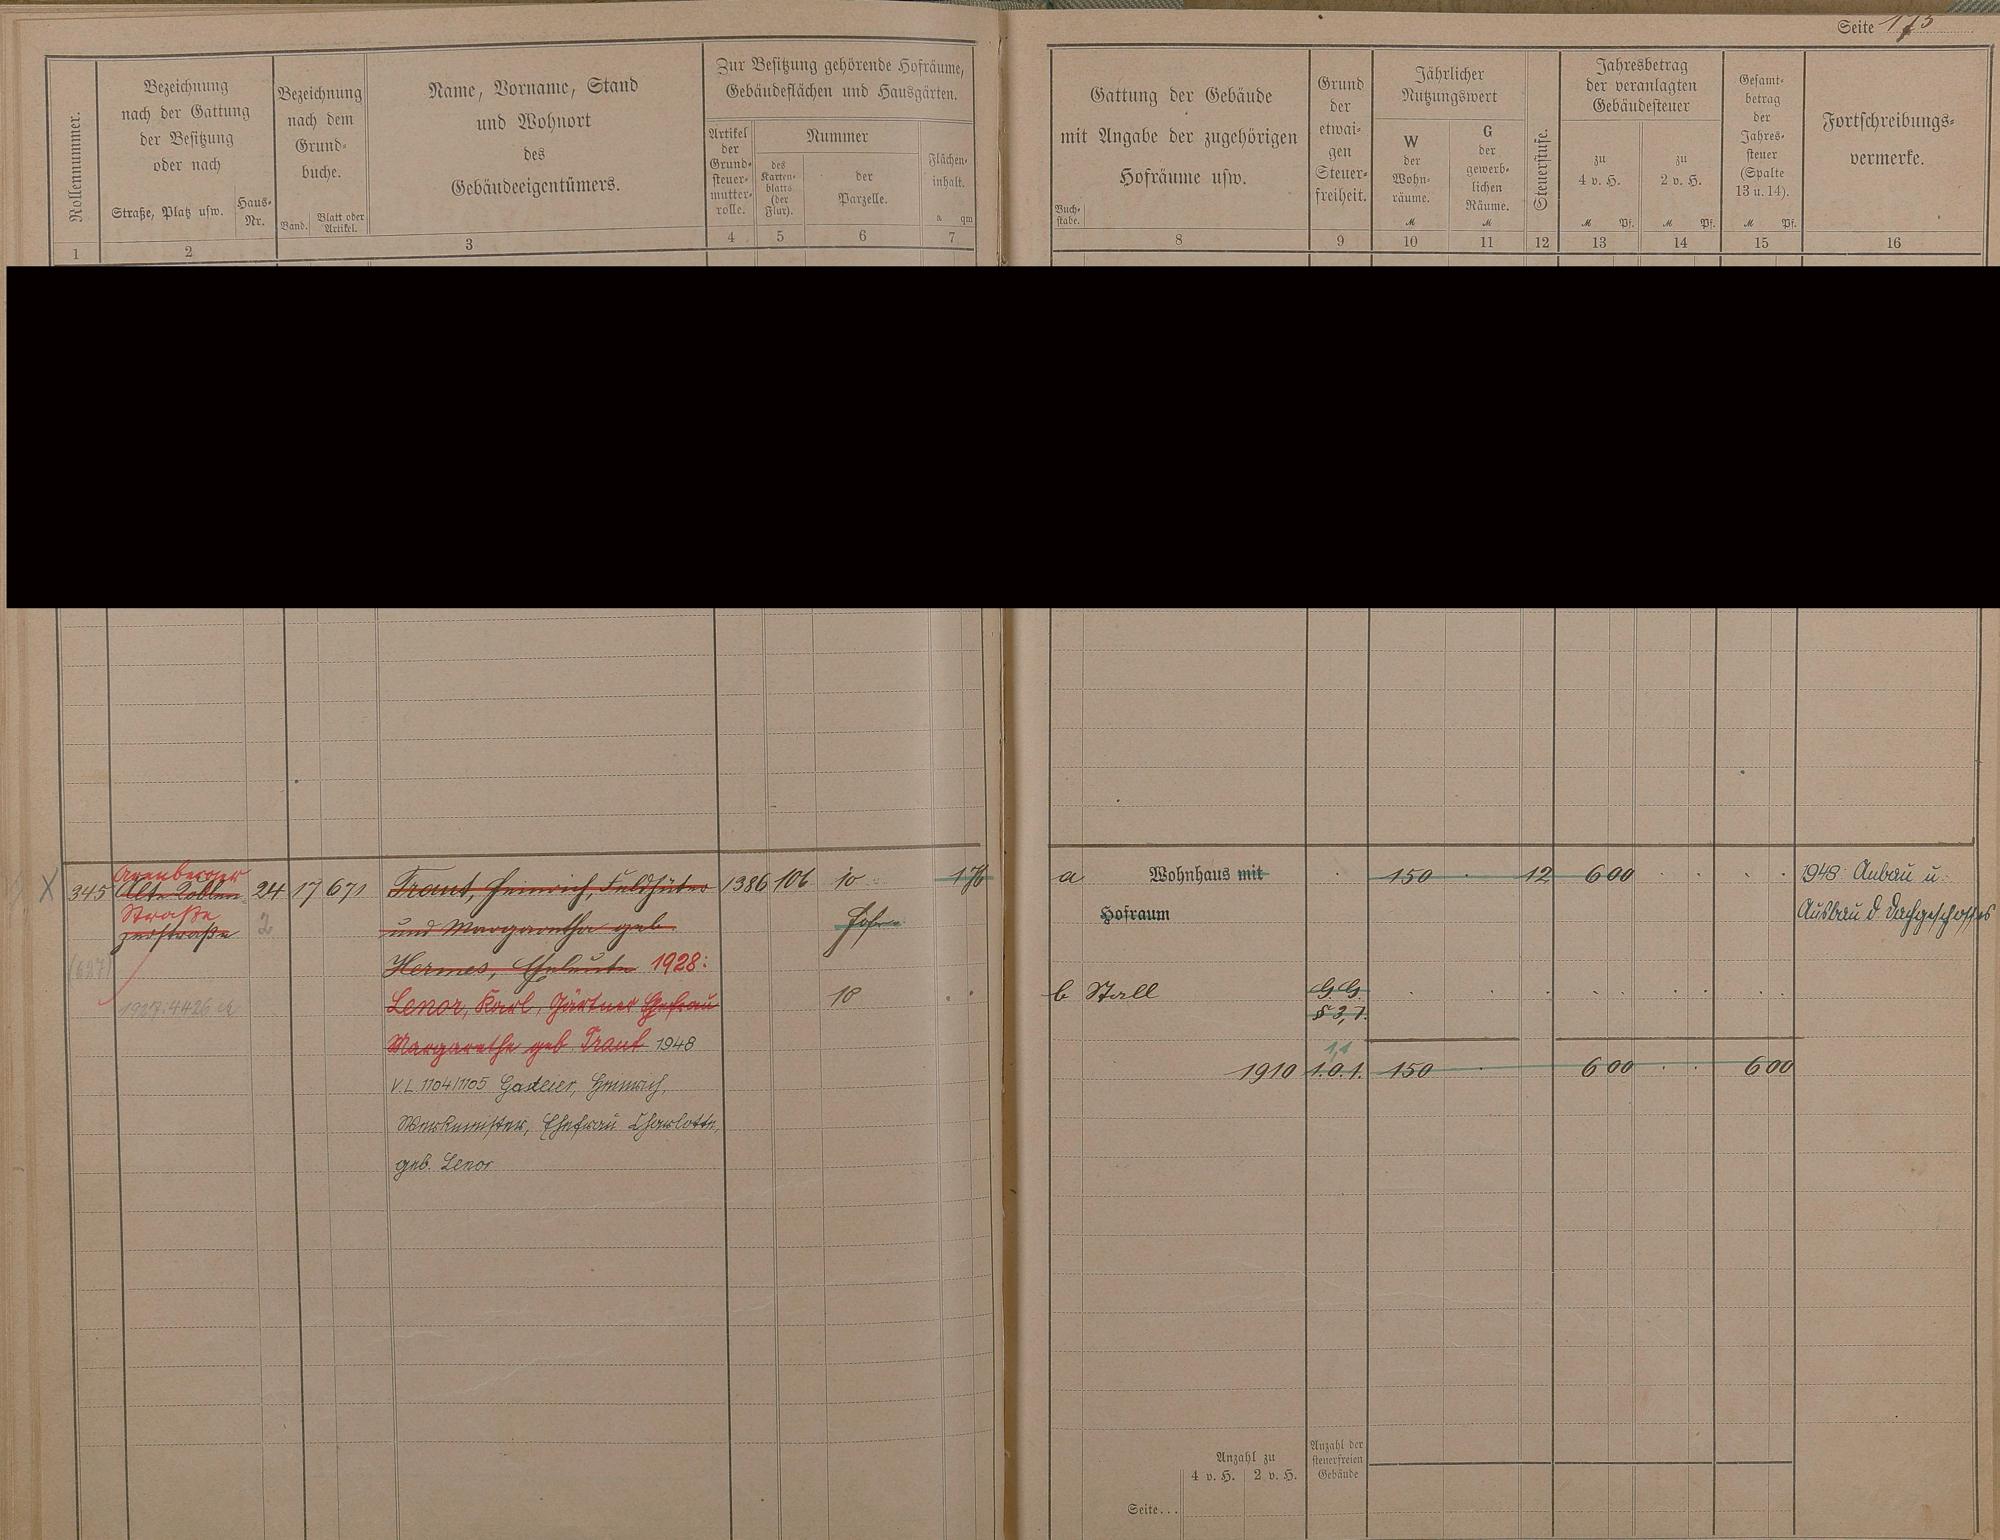 Seite 173
Rollennummer.
Bezeichnung
nach der Gattung
der Besitzung
oder nach
Straße, Platz usw.
Haus-
Nr.
Bezeichnung
nach dem
Grund-
buche.
Band.
Blatt oder
Artikel.
Name, Vorname, Stand
und Wohnort
des
Gebäudeeigentümers.
Zur Besitzung gehörende Hofräume,
Gebäudeflächen und Hausgärten.
Artikel
der
Grund-
steuer-
mutter-
rolle.
Nummer
des
Karten-
blatts
(der
Flur).
der
Parzelle.
Flächen-
inhalt.
a qm
Gattung der Gebäude
mit Angabe der zugehörigen
Hofräume usw.
Buch-
stabe.
Grund
der
etwai-
gen
Steuer-
freiheit.
Jährlicher
Nutzungswert
W
der
Wohn-
räume.
M
G
der
gewerb-
lichen
Räume.
M
Steuerstufe.
Jahresbetrag
der veranlagten
Gebäudesteuer
zu
4 v. H.
M Pf.
zu
2 v. H.
M Pf.
Gesamt-
betrag
der
Jahres-
steuer
(Spalte
13 u. 14).
M Pf.
Fortschreibungs-
vermerke.
1 2 3 4 5 6 7 8 9 10 11 12 13 14 15 16
X 345 Alte Coblen- 24 17 671 Traut, Heinrich, Feldhüter 1386 106 10 1 76
Arenberger
Straße
zerstraße 2
und Margaretha geb.
Hofr
Hermes, Eheleute 1928:
(627)
Lenor, Karl, Gärtner Ehefrau 10
Margarethe geb. Traut 1948
V.L. 1104/1105 Gasteier, Heinrich,
Werkmeister, Ehefrau Charlotte,
geb. Lenor
a Wohnhaus mit 150 12 6 00
Hofraum
1948: Anbau u.
Ausbau d. Dachgeschosses
b Stall G.G.
§ 3, 7.
1,1
1910 1.0.1. 150 6 00 6 00
Anzahl zu
4 v. H. 2 v. H.
Anzahl der
steuerfreien
Gebäude
Seite...